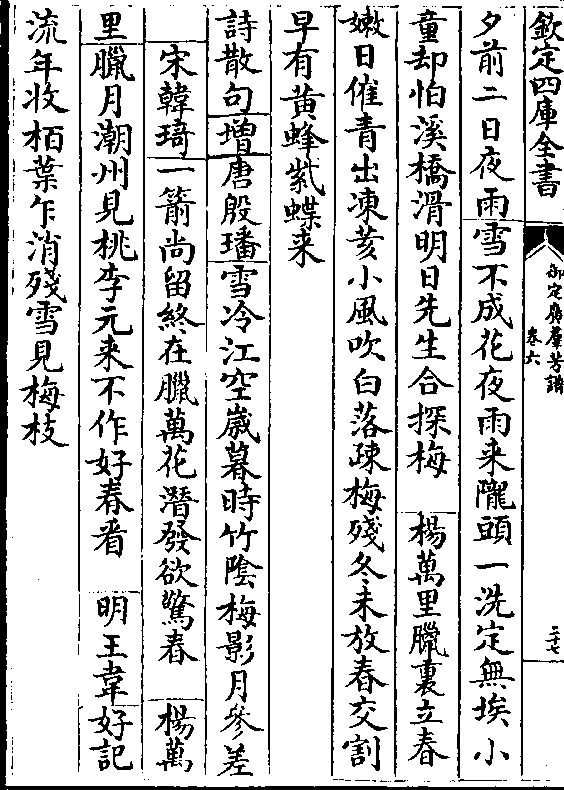 欽定四庫全書
御定廣羣芳譜
卷六
二十七
夕前二日夜雨雪不成花夜雨来隴頭一洗定無埃小
童却怕溪橋滑明日先生合探梅　楊萬里臘裏立春
嫩日催青出凍荄小風吹白落疎梅殘冬未放春交割
早有黄蜂紫蝶来
詩散句增唐殷璠雪冷江空嵗暮時竹陰梅影月參差
宋韓琦一箭尚留終在臘萬花潛發欲驚春　楊萬
里臘月潮州見桃李元来不作好春看　明王韋好記
流年收栢葉乍消殘雪見梅枝